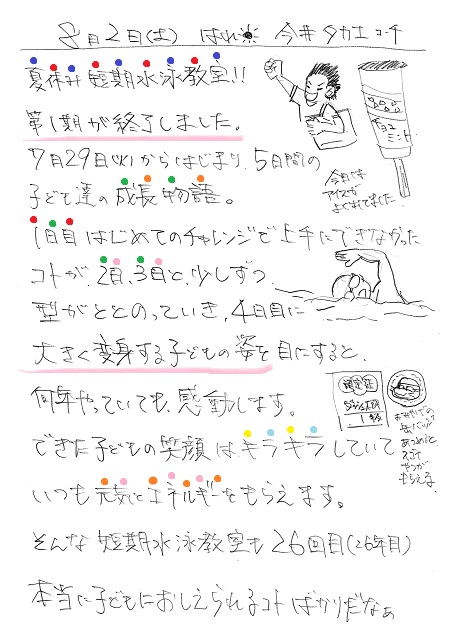 8月2日(土) はれ 今井タカエコーチ
夏休み短期水泳教室!!
第1期が終了しました。
7月29日(火)からはじまり、5日間の
子ども達の成長物語。
チョコミント
今日は
アイスが
よくれてました
1日目はじめてのチャレンジで上手にできなかった
コトが、2日、3日と、少しずつ
型がととのっていき、4日目に
大きく変身する子どもの姿を目にすると、
何年やっていても、感動します。
認定証
1級
できた子どもの笑顔はキラキラしていて
いつも元気とエネルギーをもらえます。
そんな短期水泳教室も26回目(26年目)
本当に子どもにおしえられるコトばかりだなぁ